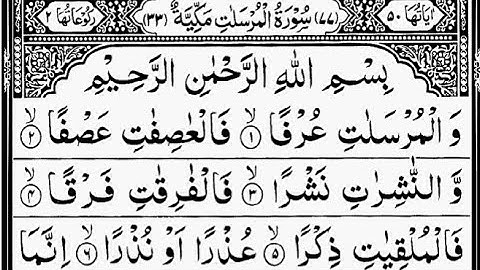 اٰيَاتُهَا ٥٠ (٧٧) سُوْرَةُ الْمُرْسَلٰتِ مَكِّيَّةٌ (٣٣) رُكُوْعَاتُهَا ٢
بِسْمِ اللّٰهِ الرَّحْمٰنِ الرَّحِيْمِ
وَ الْمُرْسَلٰتِ عُرْفًا ۙ﴿١﴾ فَالْعٰصِفٰتِ عَصْفًا ۙ﴿٢﴾
وَّ النّٰشِرٰتِ نَشْرًا ۙ﴿٣﴾ فَالْفٰرِقٰتِ فَرْقًا ۙ﴿٤﴾
فَالْمُلْقِيٰتِ ذِكْرًا ۙ﴿٥﴾ عُذْرًا اَوْ نُذْرًا ۙ﴿٦﴾ اِنَّمَا